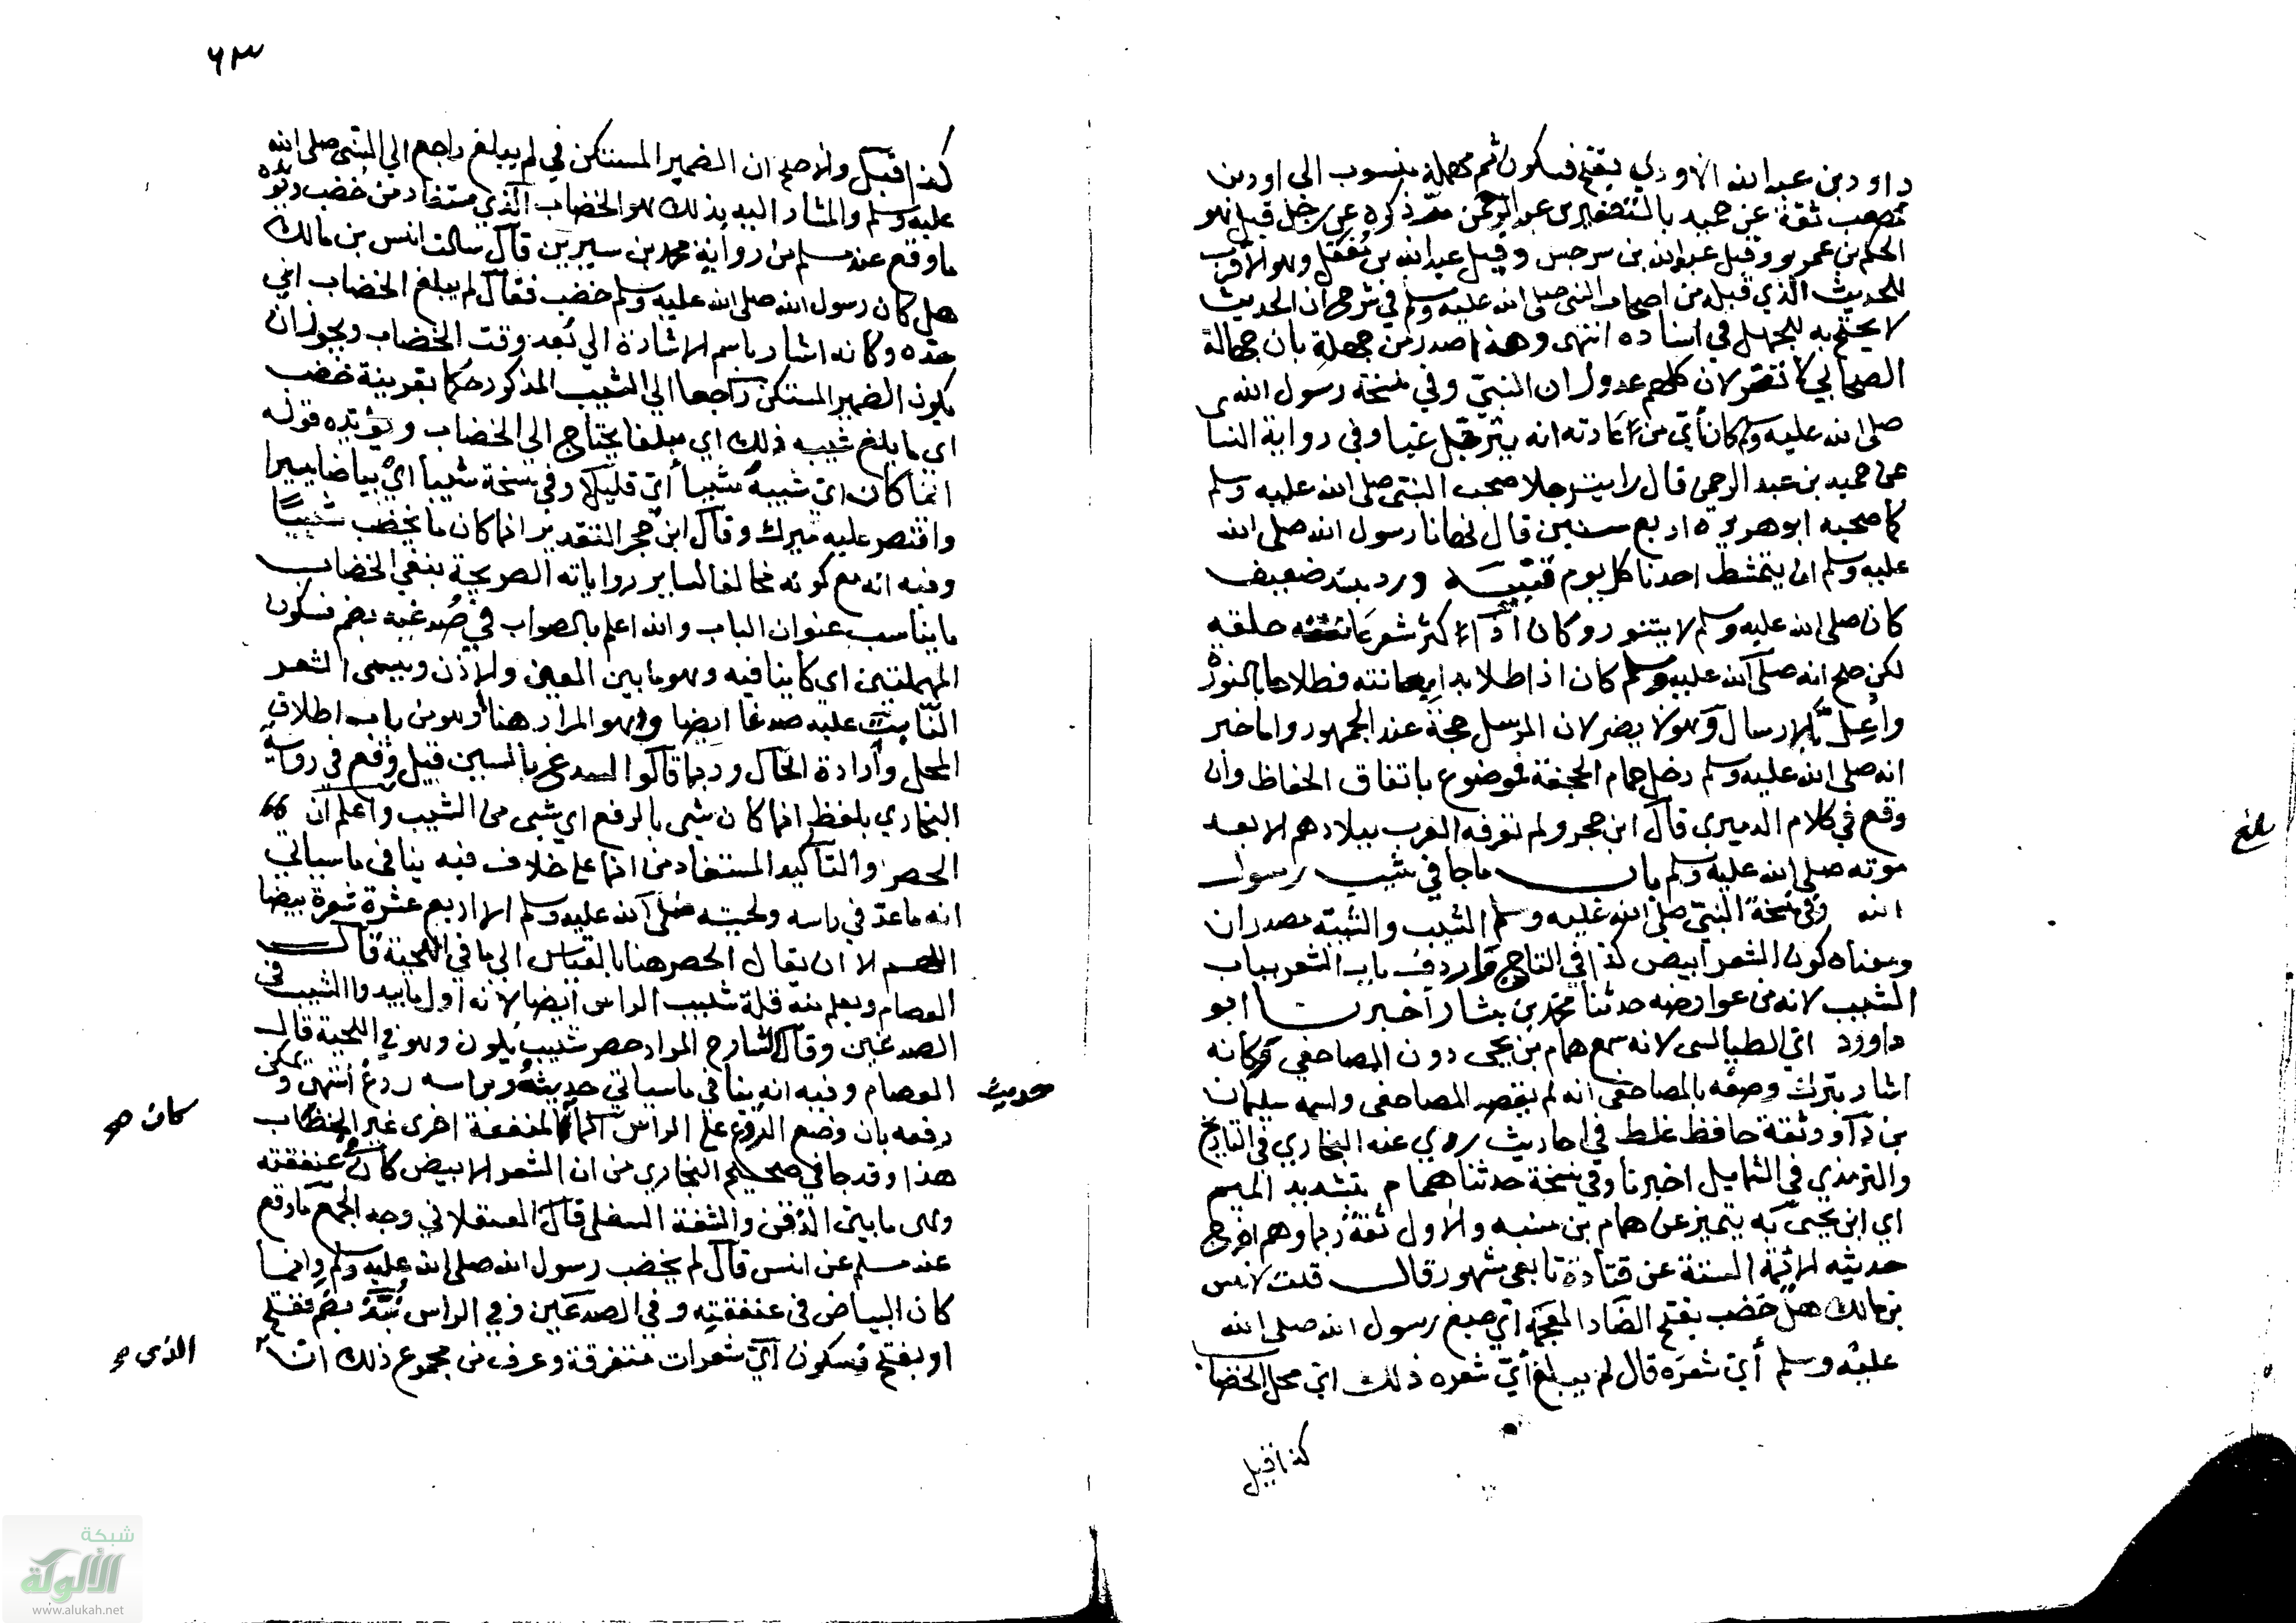 داود بن عبد الله الاودي بفتح فسكون ثم مهملة منسوب الى اود بن
مصعب ثقة عن حميد بالتصغير بن عبد الرحمن مر ذكره عن رجل قيل هو
الحكم بن عمرو وقيل عبد الله بن سرجس وقيل عبد الله بن مغفل وهو الاقرب
للحديث الذي قبله من اصحاب النبي صلى الله عليه وسلم في شرح ان الحديث
لا يحتج به للجهل في اسناده انتهى وهذا صدر من جهله بان جهالة
الصحابي لا تضر لان كلهم عدول ان النبي وفي نسخة رسول الله
صلى الله عليه وسلم كان أي من عادته انه يترجل غبا وفي رواية النسا
عن حميد بن عبد الرحمن قال رايت رجلا صحب النبي صلى الله عليه وسلم
كما صحبه ابو هريرة اربع سنين قال نهانا رسول الله صلى الله
عليه وسلم ان يتمشط احدنا كل يوم ورد بسند ضعيف
كان صلى الله عليه وسلم لا يتنور وكان اذا كثر شعر عانته حلقه
لكن صح انه صلى الله عليه وسلم كان اذا طلا بدا بعانته فطلاها بالنورة
واعل بالارسال وهو لا يضر لان المرسل حجة عند الجمهور واما خبر
انه صلى الله عليه وسلم دخل حمام الجحفة فموضوع باتفاق الحفاظ وان
وقع في كلام الدميري قال ابن حجر ولم تعرفه العرب ببلادهم الا بعد
موته صلى الله عليه وسلم باب ما جا في شيب رسول
الله وفي نسخة النبي صلى الله عليه وسلم الشيب والشيبة مصدران
ومعناه كون الشعر ابيض كذا في التاج واردف باب الشعر بباب
الشيب لانه من عوارضه حدثنا محمد بن بشار أخبرنا ابو
داوود اي الطيالسي لانه سمع همام بن يحيى دون المصاحفي وكانه
اشار بترك وصفه بالمصاحفي انه لم يقصد المصاحفي واسمه سليمان
بن داود ثقة حافظ غلط في احاديث روي عنه البخاري في التاريخ
والترمذي في الشمايل اخبرنا وفي نسخة حدثنا همام بتشديد الميم
اي ابن يحيى به يتميز عن همام بن منبه والاول ثقة ربما وهم اخرج
حديثه الائمة الستة عن قتادة تابعي مشهور قال قلت لانس
بن مالك هل خضب بفتح الضاد المعجمة اي صبغ رسول الله صلى الله
عليه وسلم أي شعره قال لم يبلغ أي شعره ذلك اي محل الخضاب
كذا قيل
بلغ
٦٣
كذا قيل والاصح ان الضمير المستكن في لم يبلغ راجع الي النبي صلى الله
عليه وسلم والمشار اليه بذلك هو الخضاب الذي مستفاد من خضب ويؤيده
ما وقع عند مسلم من رواية محمد بن سيرين قال سالت انس بن مالك
هل كان رسول الله صلى الله عليه وسلم خضب فقال لم يبلغ الخضاب اي
حده وكانه اشار باسم الاشارة الي بعد وقت الخضاب ويجوز ان
يكون الضمير المستكن راجعا الي الشيب المذكور حكما بقرينة خضب
اي ما بلغ شيبه ذلك اي مبلغا يحتاج الي الخضاب ويؤيده قوله
انما كان اي شيبه شيبا أي قليلا وفي نسخة شيبا اي بياضا يسيرا
واقتصر عليه ميرك وقال ابن حجر التقدير انما كان ما يخضب شيبا
وفيه انه مع كونه مخالفا لساير رواياته الصريحة بنفي الخضاب
ما يناسب عنوان الباب والله اعلم بالصواب في صدغيه بضم فسكون
المهملتين اي كاينا فيه وهو ما بين العين والاذن ويسمى الشعر
النابت عليه صدغا ايضا وهو المراد هنا وهو من باب اطلاق
المحل وارادة الحال وربما قالوا السدغ بالسين قيل وقع في رواية
البخاري بلفظ انما كان شي بالرفع اي شي من الشيب واعلم ان
الحصر والتاكيد المستفاد من انما على خلاف فيه ينافي ما سياتي
انه ما عد في راسه ولحيته صلى الله عليه وسلم الا اربع عشرة شعرة بيضا
اللهم الا ان يقال الحصر هنا بالقياس الي ما في اللحية قال
العصام ويعلم منه قلة شيب الراس ايضا لانه اول ما يبدوا الشيب في
الصدغين وقال الشارح المراد حصر شيب يلون وهو في اللحية قال
العصام وفيه انه ينافي ما سياتي حديثه وبراسه ردغ انتهى ويمكن
دفعه بان وضع الردغ على الراس لمنفعة اخرى غير الخضاب
هذا وقد جا في صحيح البخاري من ان الشعر الابيض كان في عنفقته
وهي ما بين الذقن والشفة السفلى قال العسقلاني وجه الجمع ما وقع
عند مسلم عن انس قال لم يخضب رسول الله صلى الله عليه وسلم وانما
كان البياض في عنفقته وفي الصدغين وفي الراس نبذ بضم ففتح
او بفتح فسكون أي شعرات متفرقة وعرف من مجموع ذلك ان
حديث
كان صح
الذي صح
شبكة
الألوكة
www.alukah.net